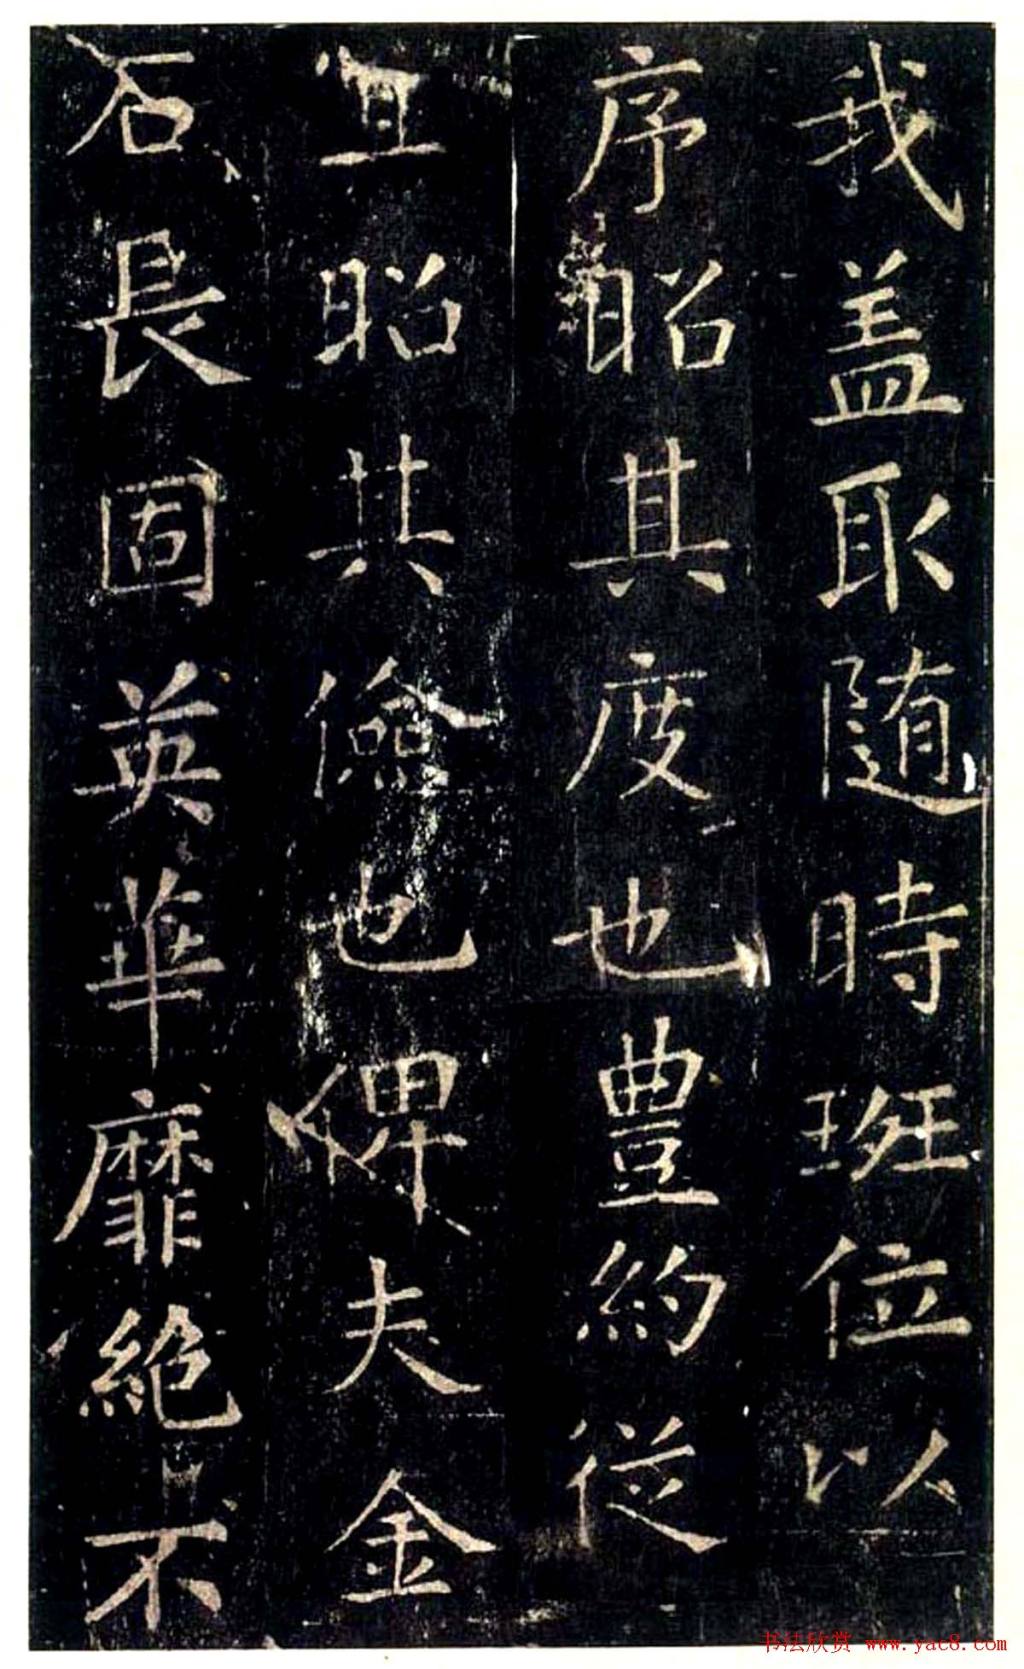 我盖取随時班位以
序昭其度也豊約従
宜昭共儉也俾夫金
石長固英華靡絶不
书法欣赏 www.yac8.com